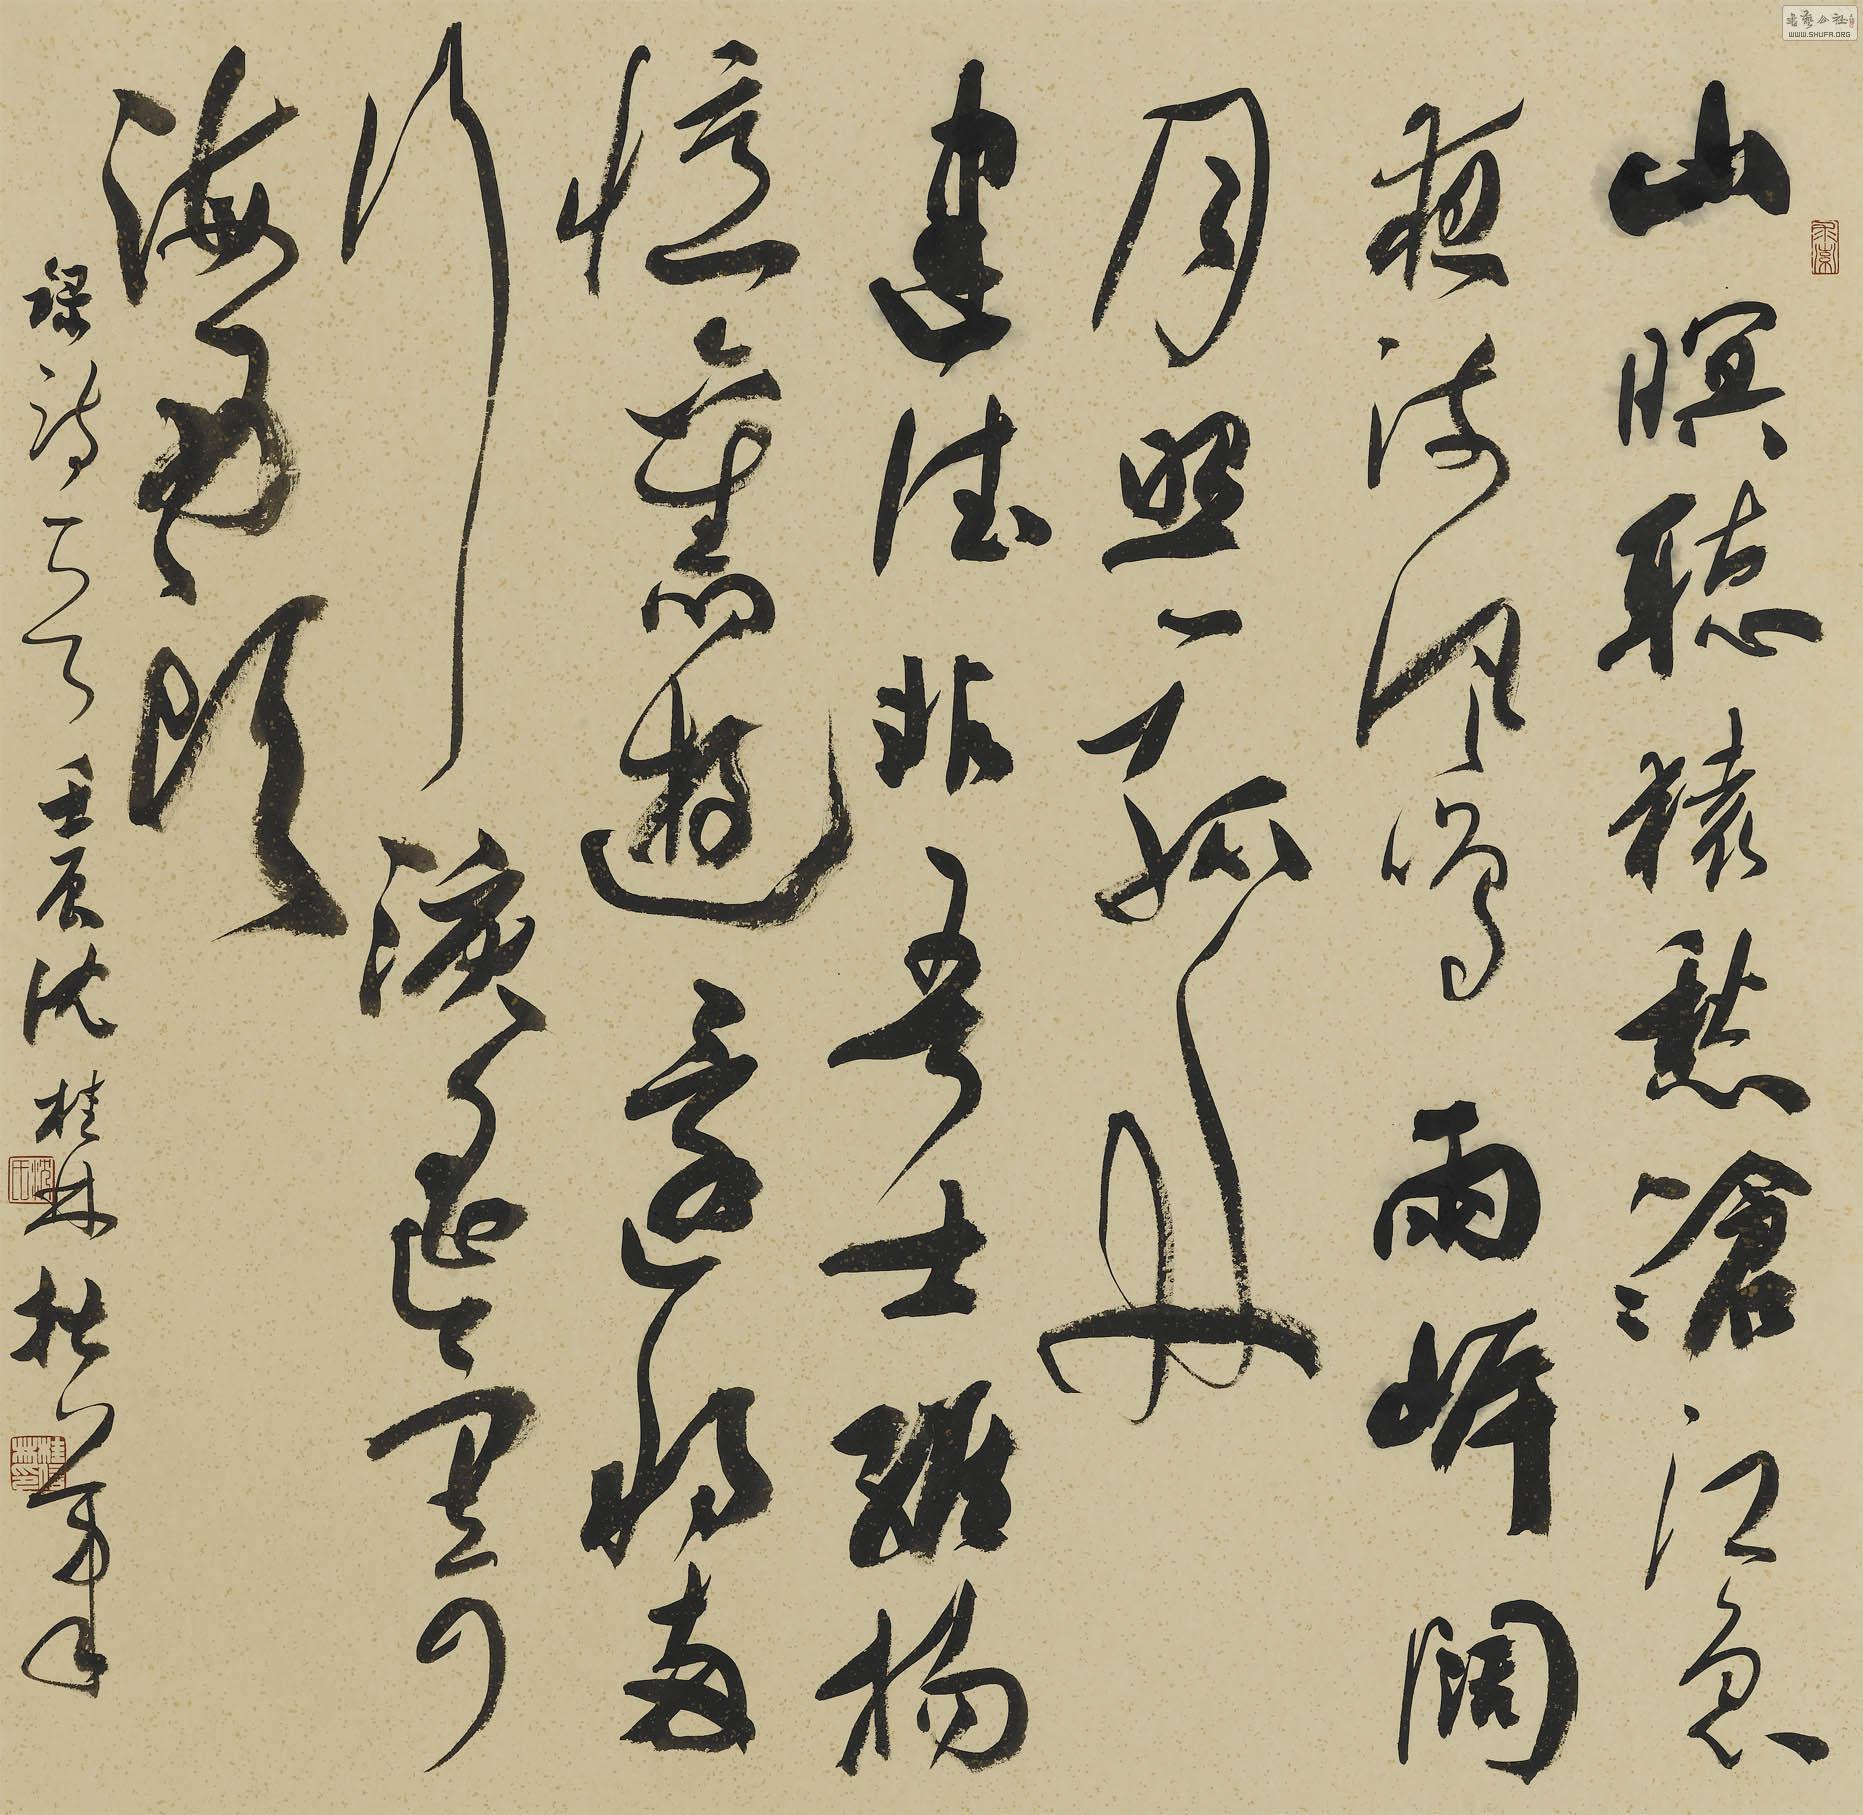 書藝公社
WWW.SHUFA.ORG
山暝聽猿愁滄江急
夜流風鳴兩岸闊
月照一孤舟
建德非吾土維揚
憶舊遊還將兩
行淚遙寄
海西頭
録詩一首壬辰沈桂林拙筆
沈氏